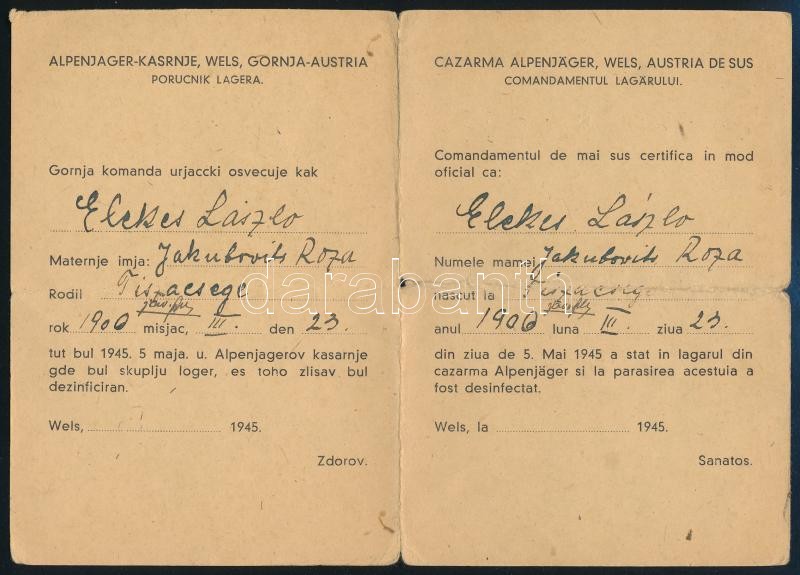 ALPENJAGER-KASRNJE, WELS, GORNJA-AUSTRIA
PORUCNIK LAGERA.
Gornja komanda urjaccki osvecuje kak
Elekes László
Maternje imja: Jakubovits Roza
Rodil Tiszacsege
rok 1906 misjac, III. den 23.
tut bul 1945. 5 maja. u. Alpenjagerov kasarnje
gde bul skuplju loger, es toho zlisav bul
dezinficiran.
Wels, 1945.
Zdorov.
CAZARMA ALPENJÄGER, WELS, AUSTRIA DE SUS
COMANDAMENTUL LAGĂRULUI.
Comandamentul de mai sus certifica in mod
oficial ca:
Elekes László
Numele mamei Jakubovits Roza
nascut la Tiszacsege
anul 1906 luna III. ziua 23.
din ziua de 5. Mai 1945 a stat in lagarul din
cazarma Alpenjäger si la parasirea acestuia a
fost desinfectat.
Wels, la 1945.
Sanatos.
darabanth